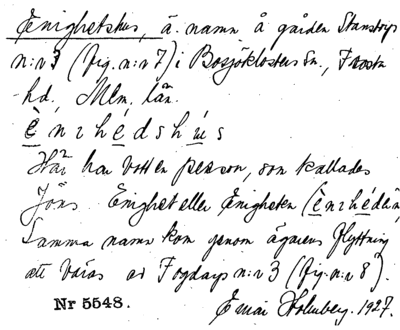 Enighetshus, ä. namn å gården Stanstorp
n:r 3 (fig. n:r 7) i Bosjöklosters sn., Frosta
hd, Mlm. län.
è n ı h é d s h ú s
Här har bott en person, som kallades
Jöns Enighet eller Enigheten (ènıhédän)
Samma namn kom genom ägarens flyttning
att bäras av Fogdarp n:r 3 (fig. n:r 8).
Nr 5548. Holmberg. 1927.